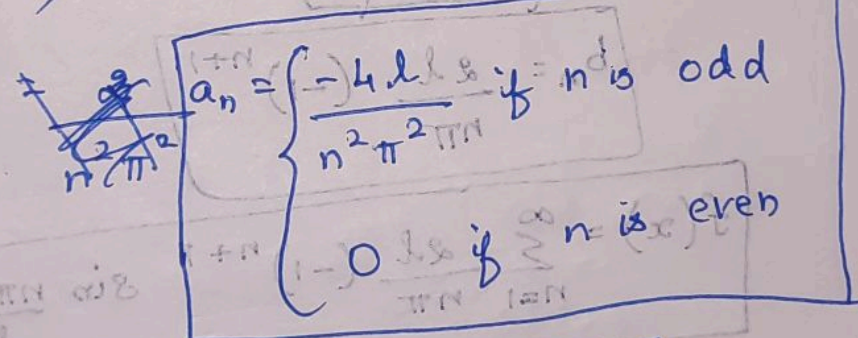 aₙ = { -4l / n²π² if n is odd
0 if n is even
n² π²